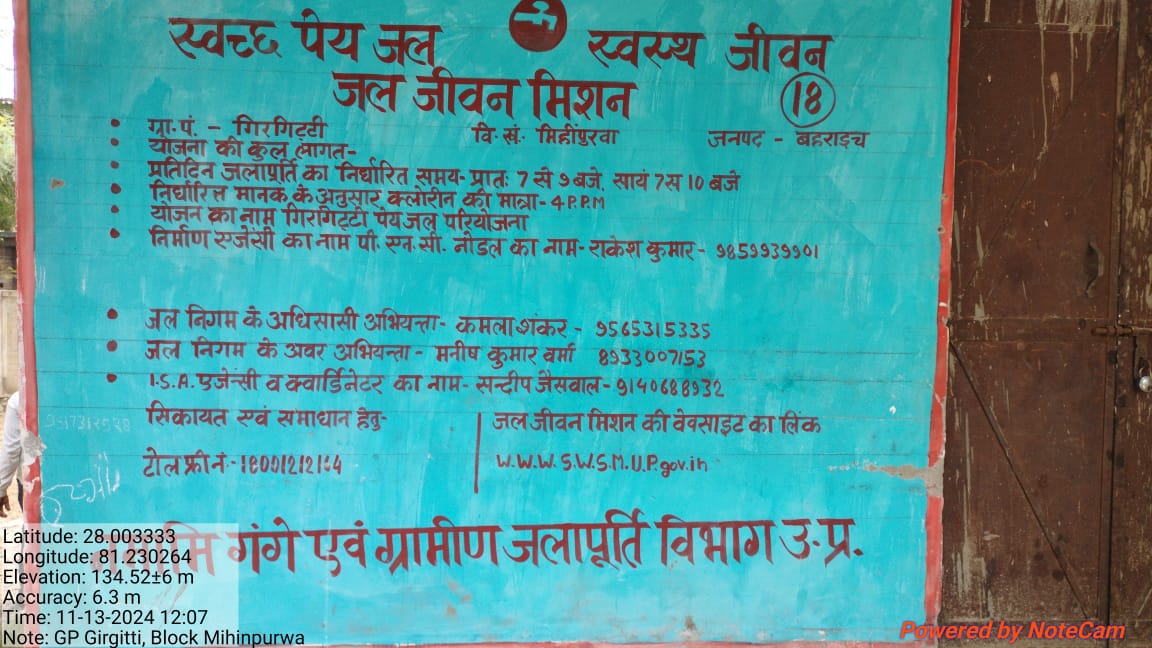 स्वच्छ पेय जल स्वस्थ जीवन
जल जीवन मिशन 18
• ग्रा.पं. - गिरगिट्टी वि.खं. मिहींपुरवा जनपद - बहराइच
• योजना की कुल लागत-
• प्रतिदिन जलापूर्ति का निर्धारित समय- प्रातः 7 से 9 बजे, सायं 7 स 10 बजे
• निर्धारित्त मानक के अनुसार क्लोरीन की मात्रा- 4 P.P.M
• योजन का नाम गिरगिट्टी पेयजल परियोजना
• निर्माण एजेंसी का नाम पी. एन. सी. नोडल का नाम- राकेश कुमार- 9859939901
• जल निगम के अधिसासी अभियन्ता- कमला शंकर - 9565315335
• जल निगम के अवर अभियन्ता - मनीष कुमार वर्मा 8933007153
• I.S.A. एजेन्सी व क्वार्डिनेटर का नाम- सन्दीप जैसवाल- 9140688932
सिकायत एवं समाधान हेतु- जल जीवन मिशन की वेवसाइट का लिंक
टोल फ्री नं.- 18001212164 W.W.W.S.W.S.M.U.P.gov.in
गंगे एवं ग्रामीण जलापूर्ति विभाग उ.प्र.
Latitude: 28.003333
Longitude: 81.230264
Elevation: 134.52±6 m
Accuracy: 6.3 m
Time: 11-13-2024 12:07
Note: GP Girgitti, Block Mihinpurwa
Powered by NoteCam